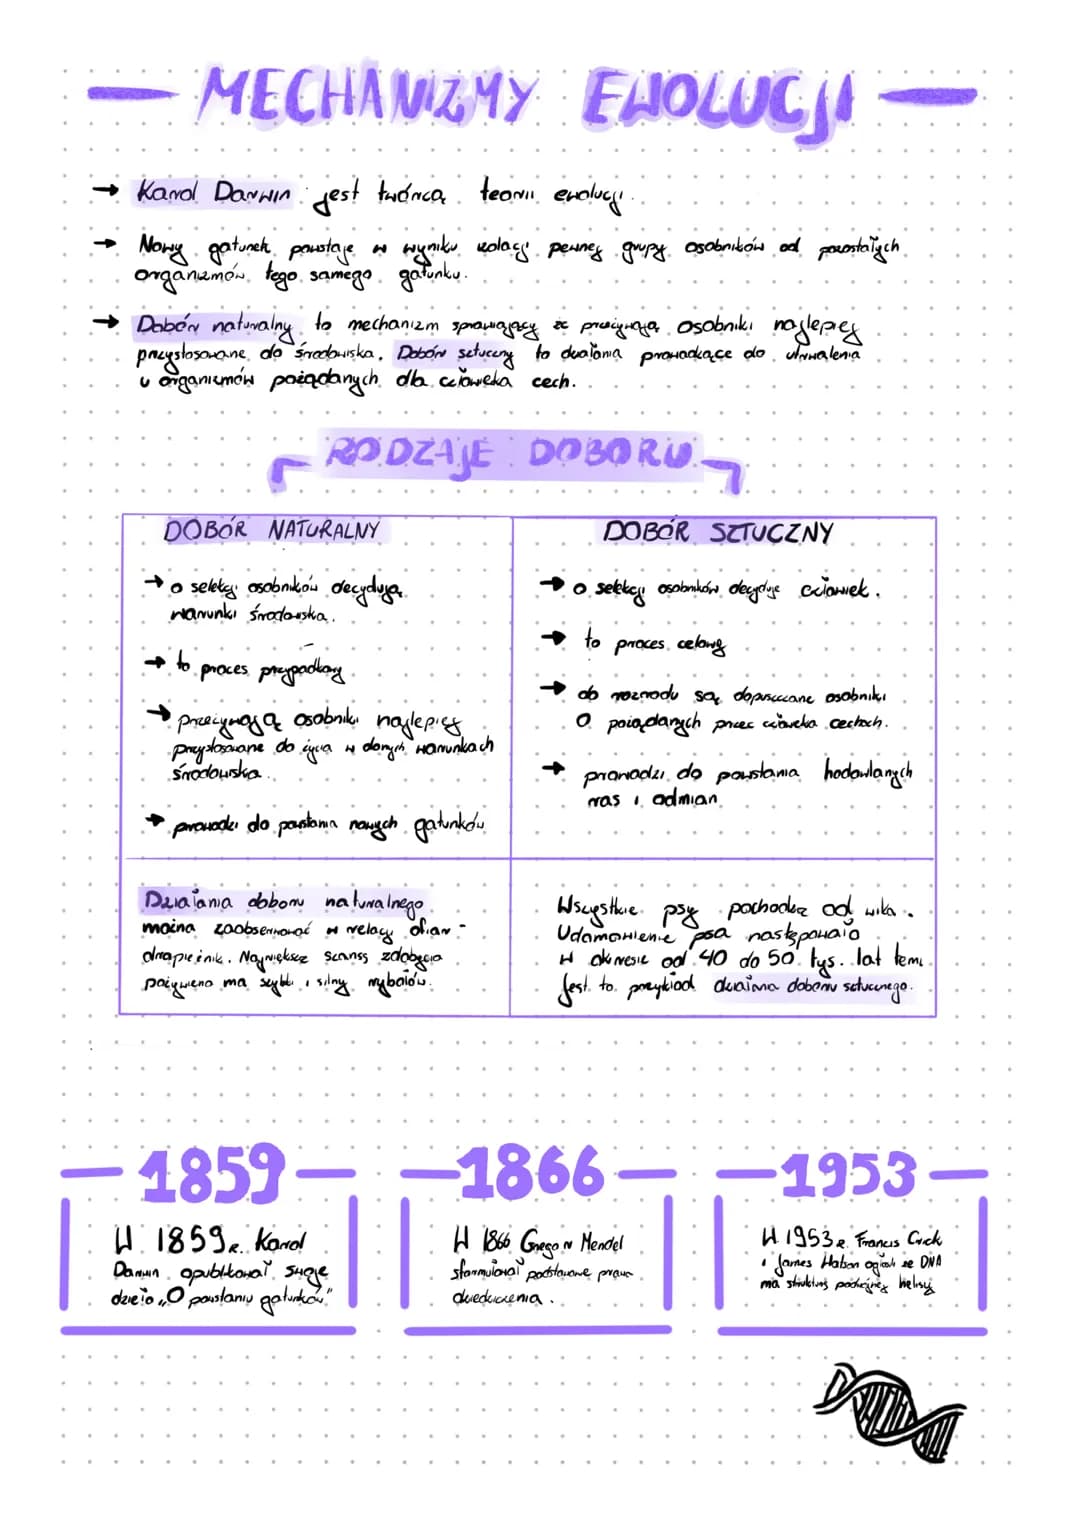 MECHANIZMY EWOLUCJI
→ Karol Darwin jest twórcą teorii ewolucji.
→ Nowy gatunek powstaje w wyniku izolacji pewnej grupy osobników od pozostałych
organizmów tego samego gatunku.
→ Dobór naturalny to mechanizm sprawiający że przeżywają osobniki najlepiej
przystosowane do środowiska. Dobór sztuczny to działania prowadzące do utrwalenia
u organizmów pożądanych dla człowieka cech.
RODZAJE DOBORU
DOBÓR NATURALNY
→ o selekcji osobników decydują
warunki środowiska.
→ to proces przypadkowy
→ przeżywają osobniki najlepiej
przystosowane do życia w danych warunkach
środowiska.
→ prowadzi do powstania nowych gatunków
DOBÓR SZTUCZNY
→ o selekcji osobników decyduje człowiek.
→ to proces celowy
→ do rozrodu są dopuszczane osobniki
o pożądanych przez człowieka cechach.
→ prowadzi do powstania hodowlanych
ras i odmian
Działania doboru naturalnego
można zaobserwować w relacji ofiara -
drapieżnik. Największe szanse zdobycia
pożywienia ma szybki i silny rybołów.
Wszystkie psy pochodzą od wilka.
Udomowienie psa następowało
w okresie od 40 do 50 tys. lat temu
Jest to przykład działania doboru sztucznego.
1859
W 1859r. Karol
Darwin opublikował swoje
dzieło „O powstaniu gatunków"
1866
W 1866 Gregor Mendel
sformułował podstawowe prawa
dziedziczenia.
1953
W 1953r. Francis Crick
i James Watson ogłosili że DNA
ma strukturę podwójnej helisy